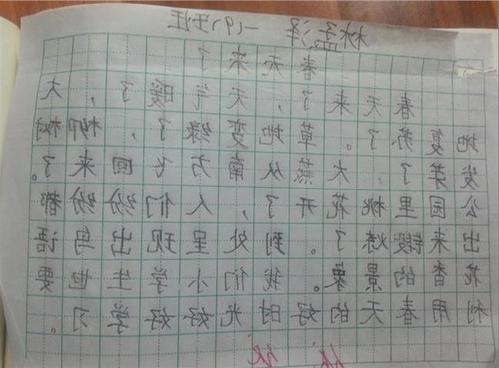 春天来了
春天来了，天气暖了，大
地复苏了。草地变绿了，柳树
发芽了，大燕从南方飞回来了。
公园里桃花开了，人们纷纷都
出来锻炼了。到处呈现出鸟语
花香的景象。我们小学生也要
利用春天的好时光好好学习。